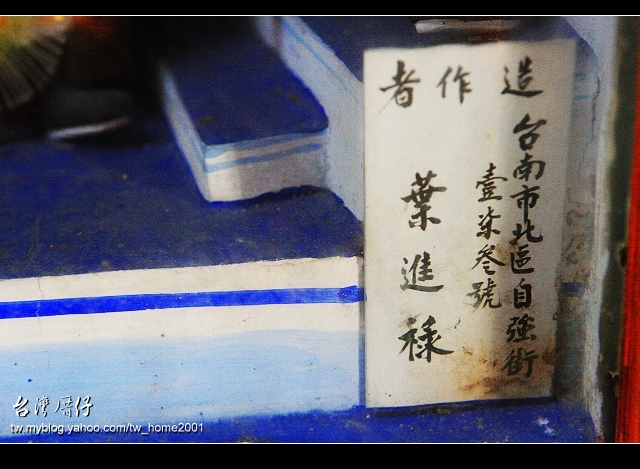 造作者
台南市北區自強街
壹柒叁號
葉進祿
台灣厝仔
tw.myblog.yahoo.com/tw_home2001